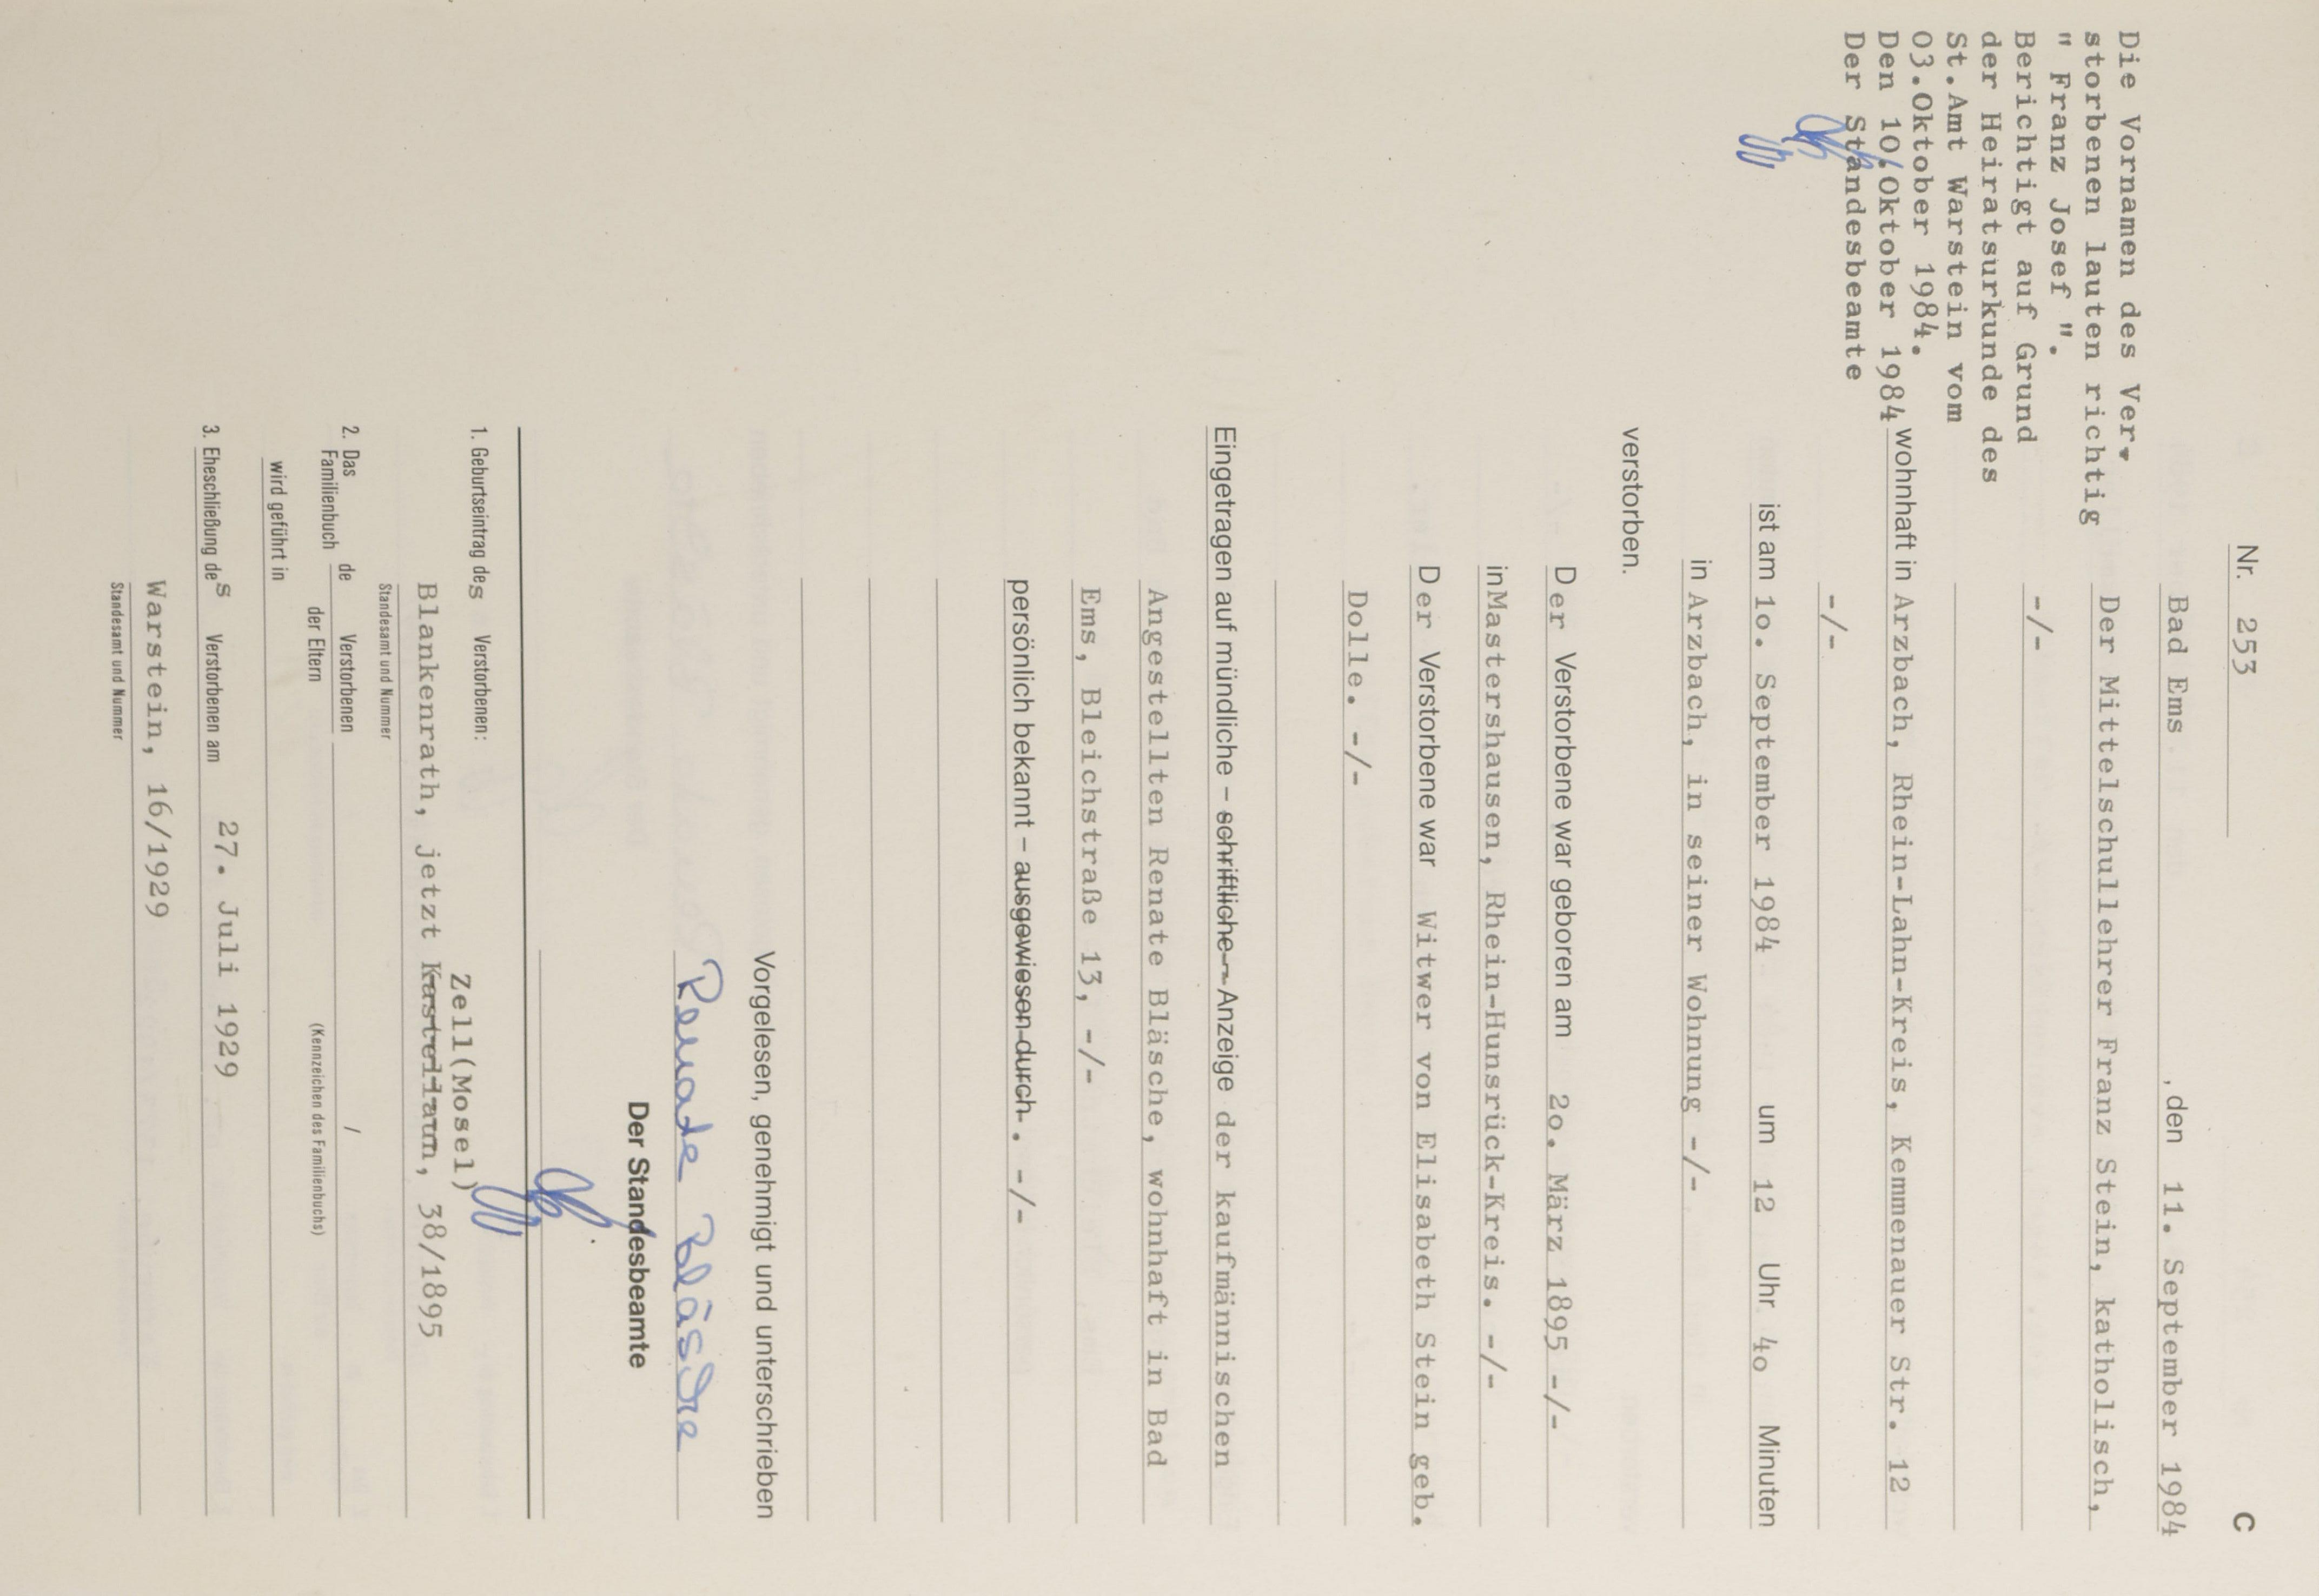 Nr. 253
C
Bad Ems , den 11. September 1984
Der Mittelschullehrer Franz Stein, katholisch,
-/-
wohnhaft in Arzbach, Rhein-Lahn-Kreis, Kemmenauer Str. 12
-/-
ist am 1o. September 1984 um 12 Uhr 4o Minuten
in Arzbach, in seiner Wohnung -/-
verstorben.
Der Verstorbene war geboren am 2o. März 1895 -/-
in Mastershausen, Rhein-Hunsrück-Kreis. -/-
Der Verstorbene war Witwer von Elisabeth Stein geb.
Dolle. -/-
Eingetragen auf mündliche – schriftliche – Anzeige der kaufmännischen
Angestellten Renate Bläsche, wohnhaft in Bad
Ems, Bleichstraße 13, -/-
persönlich bekannt – ausgewiesen durch . -/-
Vorgelesen, genehmigt und unterschrieben
Renate Bläsche
Der Standesbeamte
1. Geburtseintrag des Verstorbenen:
Zell(Mosel)
Blankenrath, jetzt Kastellaun, 38/1895
Standesamt und Nummer
2. Das Familienbuch de Verstorbenen /
der Eltern (Kennzeichen des Familienbuchs)
wird geführt in
3. Eheschließung des Verstorbenen am 27. Juli 1929
Warstein, 16/1929
Standesamt und Nummer
Die Vornamen des Ver-
storbenen lauten richtig
" Franz Josef ".
Berichtigt auf Grund
der Heiratsurkunde des
St.Amt Warstein vom
03.Oktober 1984.
Den 10.Oktober 1984
Der Standesbeamte